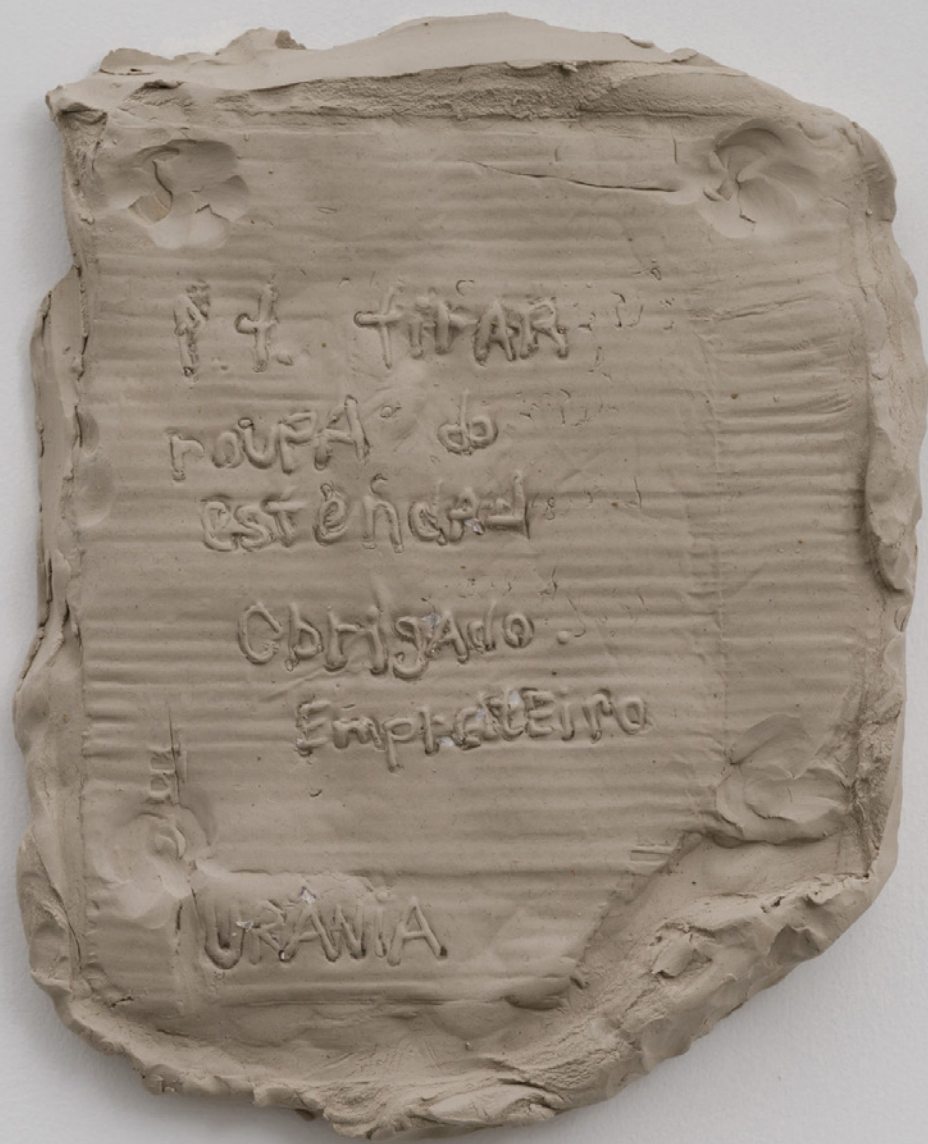 P.f. tirAR
roupA do
estendal
ObrigAdo.
EmpreitEiro
URANIA